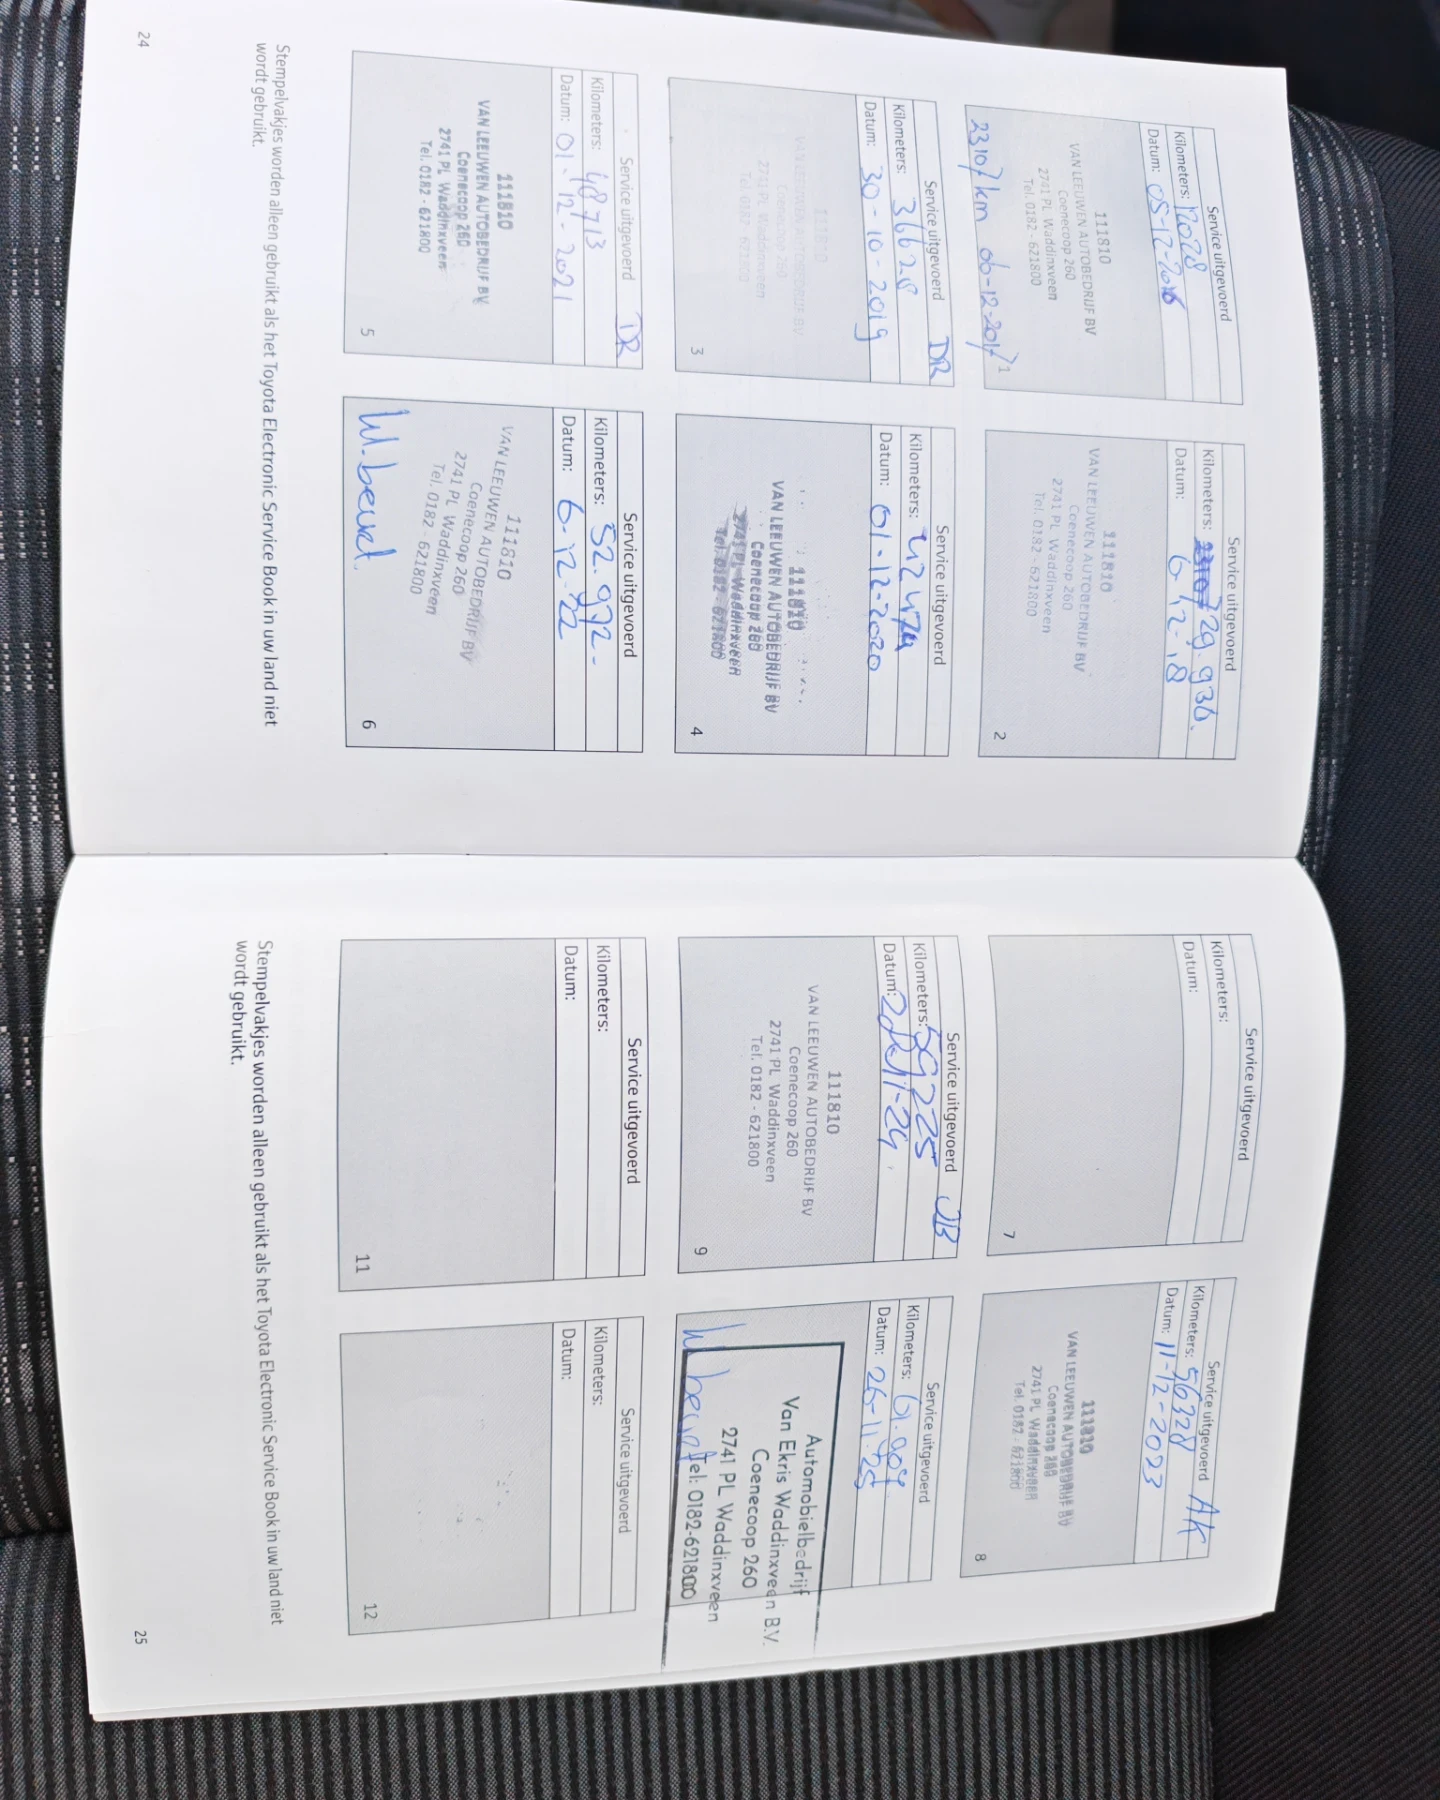 Service uitgevoerd
Kilometers: 12028
Datum: 05-12-2016
111810
VAN LEEUWEN AUTOBEDRIJF BV
Coenecoop 260
2741 PL Waddinxveen
Tel. 0182 - 621800
23107 km 06-12-2017
1
Service uitgevoerd
Kilometers: 29.936.
Datum: 6-12-18
111810
VAN LEEUWEN AUTOBEDRIJF BV
Coenecoop 260
2741 PL Waddinxveen
Tel. 0182 - 621800
2
Service uitgevoerd DR
Kilometers: 36628
Datum: 30-10-2019
111810
VAN LEEUWEN AUTOBEDRIJF BV
Coenecoop 260
2741 PL Waddinxveen
Tel. 0182 - 621800
3
Service uitgevoerd
Kilometers: 42474
Datum: 01-12-2020
111810
VAN LEEUWEN AUTOBEDRIJF BV
Coenecoop 260
2741 PL Waddinxveen
Tel. 0182 - 621800
4
Service uitgevoerd DR
Kilometers: 48713
Datum: 01-12-2021
111810
VAN LEEUWEN AUTOBEDRIJF BV
Coenecoop 260
2741 PL Waddinxveen
Tel. 0182 - 621800
5
Service uitgevoerd
Kilometers: 52.992-
Datum: 6-12-22
111810
VAN LEEUWEN AUTOBEDRIJF BV
Coenecoop 260
2741 PL Waddinxveen
Tel. 0182 - 621800
6
Stempelvakjes worden alleen gebruikt als het Toyota Electronic Service Book in uw land niet
wordt gebruikt.
24
Service uitgevoerd
Kilometers:
Datum:
7
Service uitgevoerd AK
Kilometers: 56328
Datum: 11-12-2023
111810
VAN LEEUWEN AUTOBEDRIJF BV
Coenecoop 260
2741 PL Waddinxveen
Tel. 0182 - 621800
8
Service uitgevoerd JB
Kilometers: 59225
Datum:
111810
VAN LEEUWEN AUTOBEDRIJF BV
Coenecoop 260
2741 PL Waddinxveen
Tel. 0182 - 621800
9
Service uitgevoerd
Kilometers: 61.007
Datum: 26-11-25
Automobielbedrijf
Van Ekris Waddinxveen B.V.
Coenecoop 260
2741 PL Waddinxveen
Tel: 0182-621800
Service uitgevoerd
Kilometers:
Datum:
11
Service uitgevoerd
Kilometers:
Datum:
12
Stempelvakjes worden alleen gebruikt als het Toyota Electronic Service Book in uw land niet
wordt gebruikt.
25